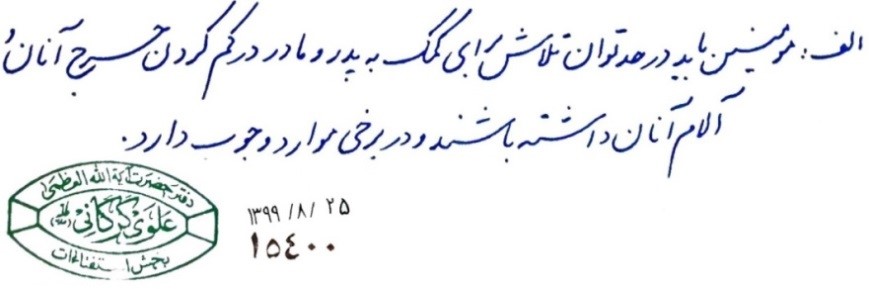 الف: مؤمنین باید در حد توان تلاش برای کمک به پدر و مادر در کم کردن حرج آنان و
آلام آنان داشته باشند و در برخی موارد وجوب دارد.
دفتر حضرت آیة الله العظمی
علوی گرگانی
بخش استفتائات
۱۳۹۹/۸/۲۵
۱۵۴۰۰